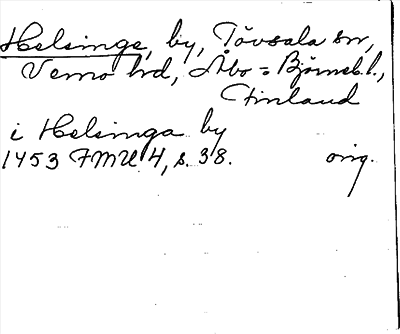 Helsinge, by, Tövsala sn,
Vemo hd, Åbo = Björneb. l.,
Finland
i Helsinga by
1453 FMU 4, s. 38. orig.